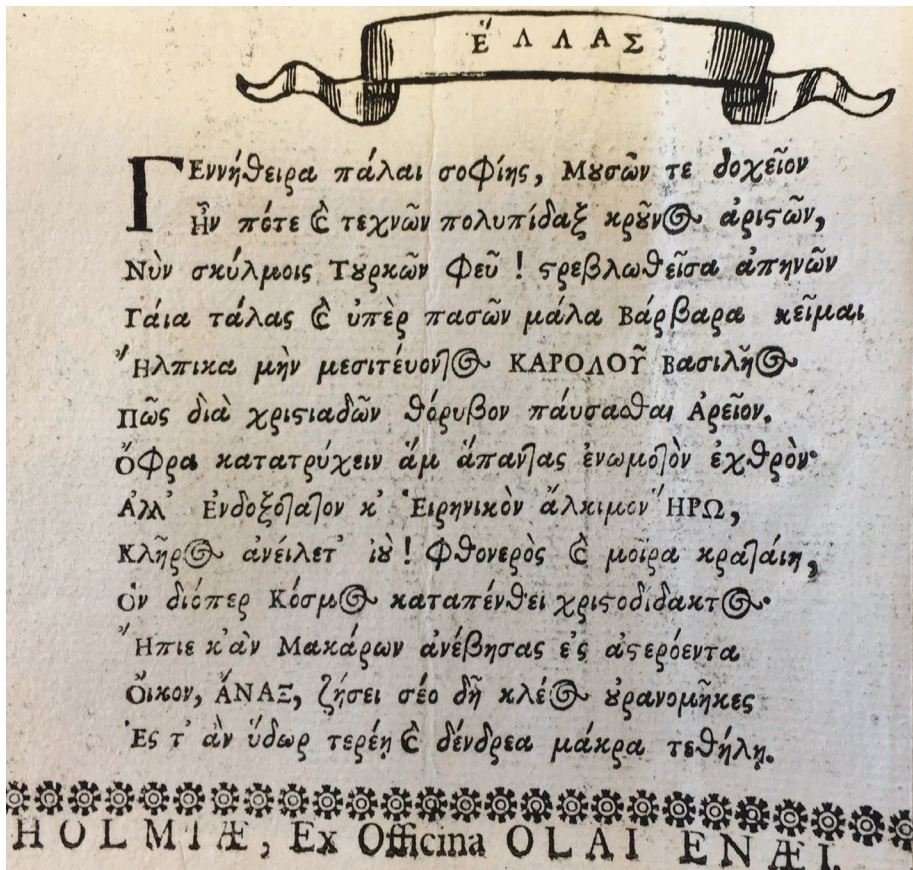 ἝΛΛΑΣ
ΓΕννήθειρα πάλαι σοφίης, Μȣσῶν τε δοχεῖον
Ἦν πότε ϗ̀ τεχνῶν πολυπίδαξ κρȣ͂νος ἀρίϛων,
Νὺν σκύλμοις Τȣρκῶν φεῦ ! ϛρεβλωθεῖσα ἀπηνῶν
Γάια τάλας ϗ̀ ὑπὲρ πασῶν μάλα Βάρβαρα κεῖμαι
Ἤλπικα μὴν μεσιτέυοντος ΚΑΡΟΛΟΥ͂ Βασιλῆος
Πῶς διὰ χριϛιαδῶν θόρυβον πάυσασθαι Ἀρεῖον.
Ὄφρα κατατρύχειν ἅμ ἅπαντας ἐνωμοτὸν ἐχθρὸν·
Ἀλλ' Ἐνδοξότατον κ' Ἐιρηνικὸν ἄλκιμον ἭΡΩ,
Κλῆρος ἀνέιλετ' ἰȣ̀ ! Φθονερὸς ϗ̀ μοῖρα κρατάιη,
Ὁν διόπερ Κόσμος καταπένθει χριϛοδίδακτος·
Ἤπιε κ'ὰν Μακάρων ἀνέβησας ἐς ἀϛερόεντα
Ὄικον, ἌΝΑΞ, ζήσει σέο δῆ κλέος ȣ̓ρανομῆκες
Ἐς τ' ἂν ὕδωρ τερέῃ ϗ̀ δένδρεα μάκρα τεθήλῃ.
HOLMIÆ, Ex Officina OLAI ENÆI.